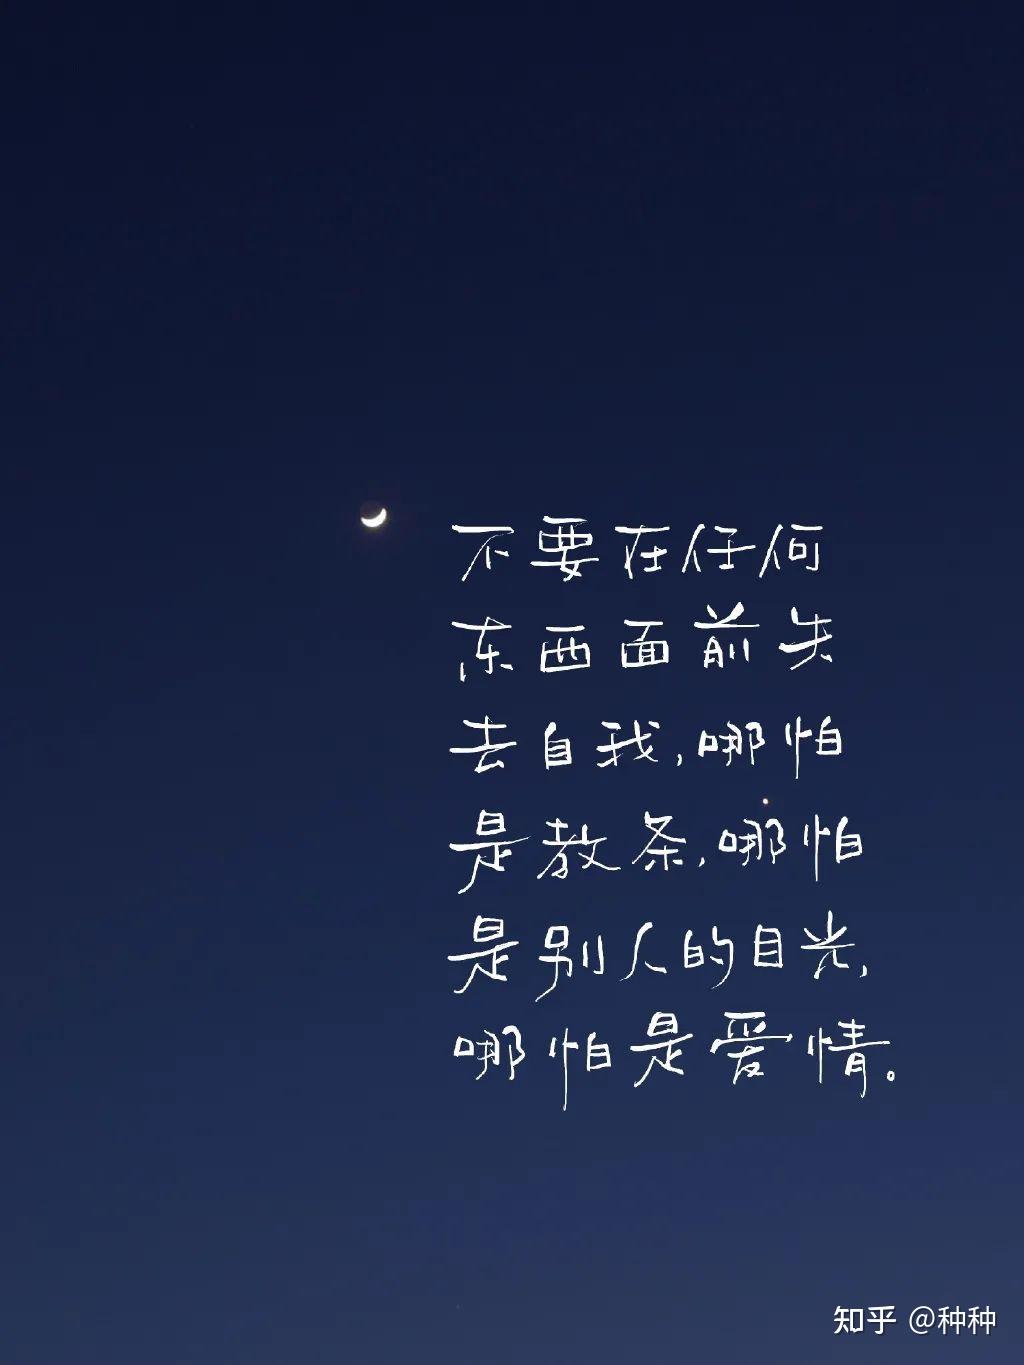 不要在任何
东西面前失
去自我,哪怕
是教条,哪怕
是别人的目光,
哪怕是爱情。
知乎 @种种